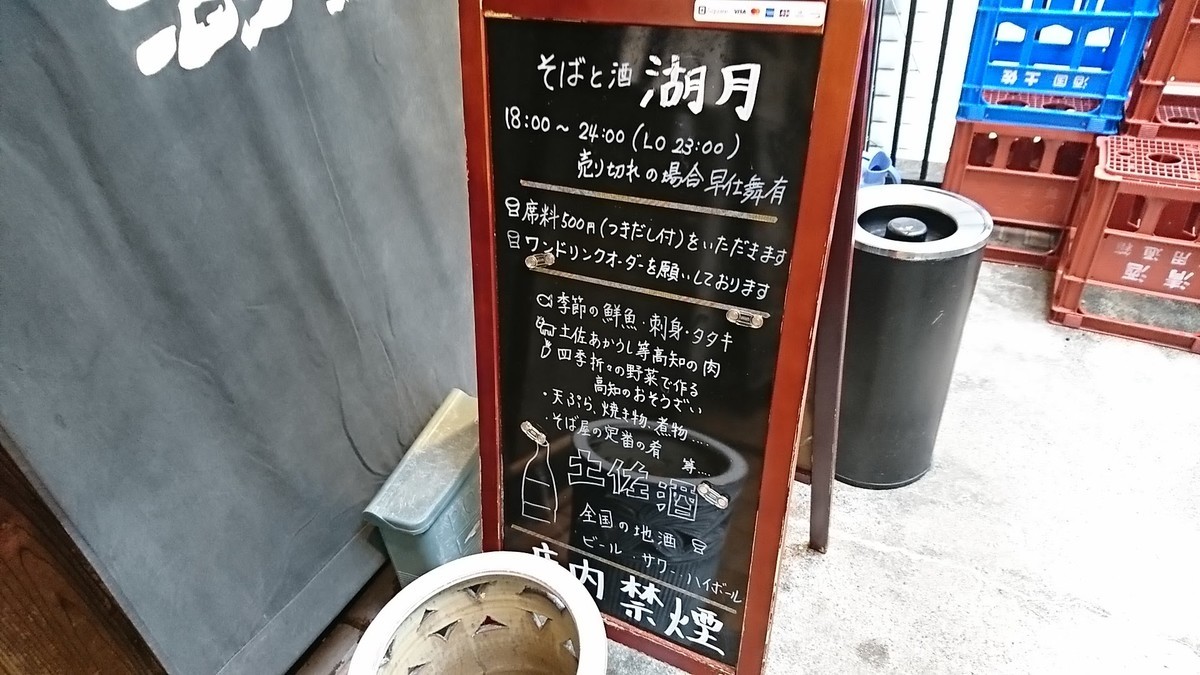 VISA
そばと酒 湖月
18:00～24:00(LO 23:00)
売り切れの場合早仕舞有
席料500円(つきだし付)をいただきます
ワンドリンクオーダーを願いしております
季節の鮮魚・刺身・タタキ
土佐あかうし等高知の肉
四季折々の野菜で作る
高知のおそうざい
・天ぷら、焼き物、煮物.....
・そば屋の定番の肴 等....
土佐酒
全国の地酒
・ビール・サワー・ハイボール
店内禁煙
酒国土佐
清酒